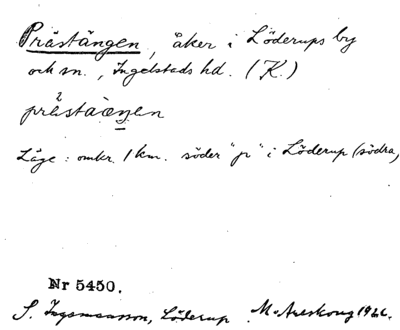 Prästängen, åker i Löderups by
och sn., Ingelstads hd. (K.)
prästaèŋen
Läge: omkr. 1 km. söder "p" i Löderup (södra)
Nr 5450.
S. Ingemansson, Löderup M. Areskoug 1922.